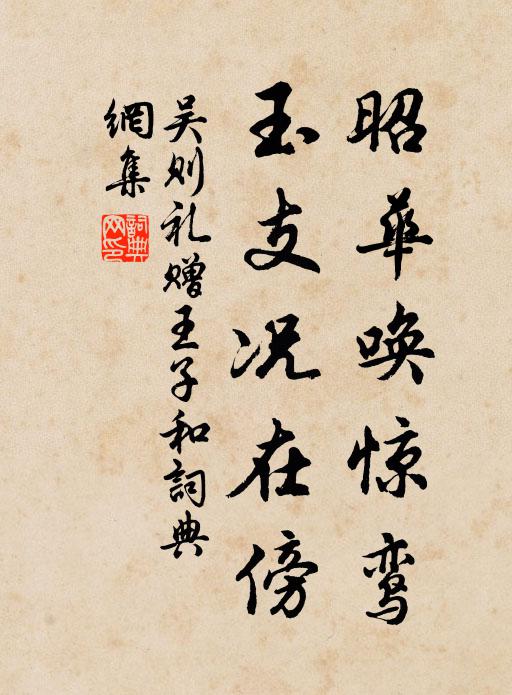 昭華唤惊鸾
玉支况在傍
吴则礼赠王子和詞典
網集
詞典网印